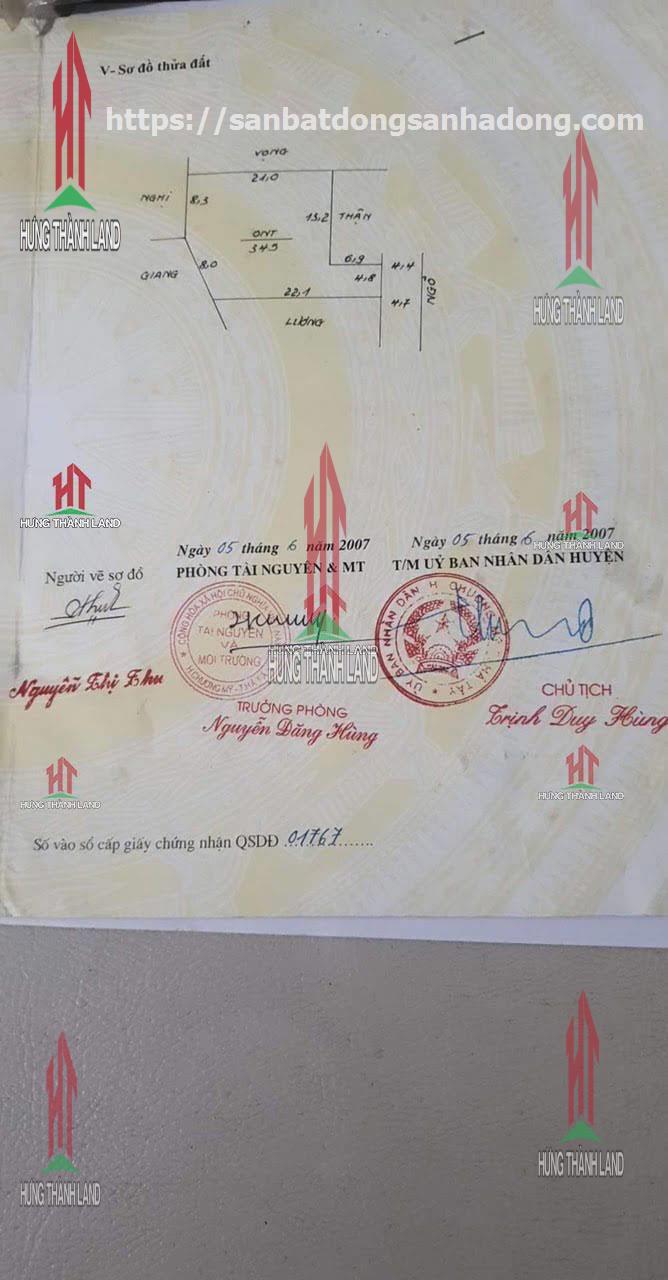 V- Sơ đồ thửa đất
https://sanbatdongsanhadong.com
HT
HƯNG THÀNH LAND
VỌNG
21,0
NGHỊ
8,3
13,2
THÂN
ONT
345
6,9
4,4
GIANG
8,0
4,8
NGÕ
22,1
4,7
LƯƠNG
HT
HƯNG THÀNH LAND
HT
HƯNG THÀNH LAND
HT
HƯNG THÀNH LAND
Ngày 05 tháng 6 năm 2007
Ngày 05 tháng 6 năm 2007
Người vẽ sơ đồ
PHÒNG TÀI NGUYÊN & MT
T/M UỶ BAN NHÂN DÂN HUYỆN
CỘNG HÒA XÃ HỘI CHỦ NGHĨA
PHÒNG
TÀI NGUYÊN
VÀ
MÔI TRƯỜNG
H.CHƯƠNG MỸ
UỶ BAN NHÂN DÂN H. CHƯƠNG
HÀ TÂY
HT
HƯNG THÀNH LAND
Nguyễn Thị Thu
TRƯỞNG PHÒNG
Nguyễn Đăng Hùng
CHỦ TỊCH
Trịnh Duy Hùng
HT
HƯNG THÀNH LAND
HT
HƯNG THÀNH LAND
Số vào sổ cấp giấy chứng nhận QSDĐ .01767.......
HT
HƯNG THÀNH LAND
HT
HƯNG THÀNH LAND